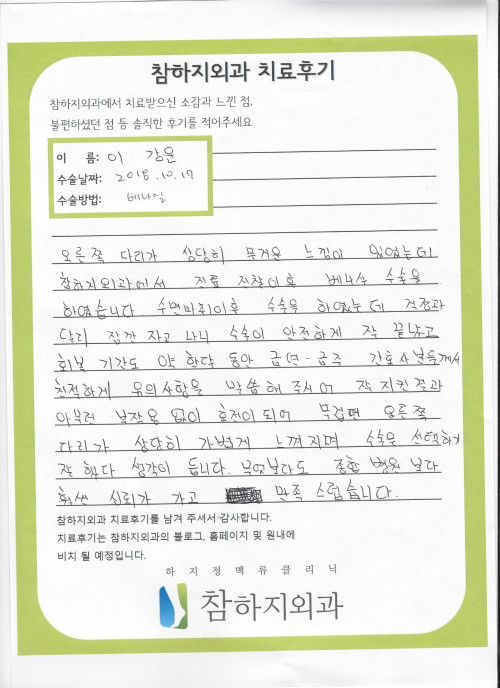 참하지외과 치료후기
참하지외과에서 치료받으신 소감과 느낀 점,
불편하셨던 점 등 솔직한 후기를 적어주세요
이 름: 이 강운
수술날짜: 2018.10.17
수술방법: 베나실
오른쪽 다리가 상당히 무거운 느낌이 있었는데
참하지외과에서 진료 진찰이후 베나실 수술을
하였습니다. 수면마취이후 수술을 하였는데 걱정과
달리 잠깐 자고 나니 수술이 안전하게 잘 끝났고
회복 기간도 약 한달 동안 금연-금주 간호사분들께서
친절하게 유의사항을 말씀해 주시어 잘 지킨 결과
아무런 부작용 없이 호전이 되어 무겁던 오른쪽
다리가 상당히 가볍게 느껴지며 수술을 선택하기
잘 했다 생각이 듭니다. 무엇보다도 종합 병원 보다
훨씬 신뢰가 가고 만족스럽습니다.
참하지외과 치료후기를 남겨 주셔서 감사합니다.
치료후기는 참하지외과의 블로그, 홈페이지 및 원내에
비치 될 예정입니다.
하지정맥류클리닉
참하지외과